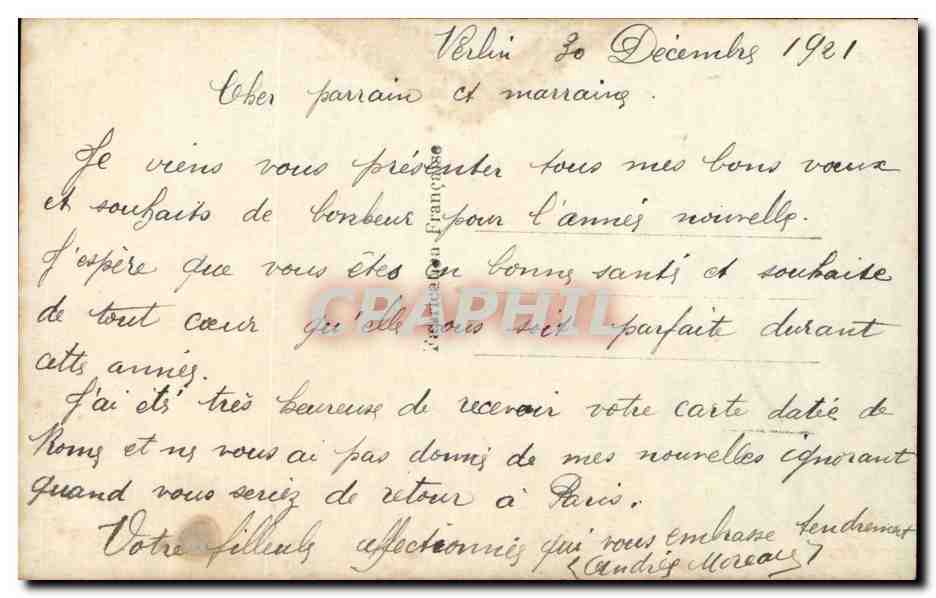 Verlin 30 Décembre 1921
Cher parrain et marraine.
Je viens vous présenter tous mes bons vœux
et souhaits de bonheur pour l'année nouvelle.
J'espère que vous êtes en bonne santé et souhaite
de tout cœur qu'elle vous soit parfaite durant
cette année.
J'ai été très heureuse de recevoir votre carte datée de
Rome et ne vous ai pas donné de mes nouvelles ignorant
quand vous seriez de retour à Paris.
Votre filleule affectionnée qui vous embrasse tendrement
(Andrée Moreau)
Fabrication Française
CRAPHIL